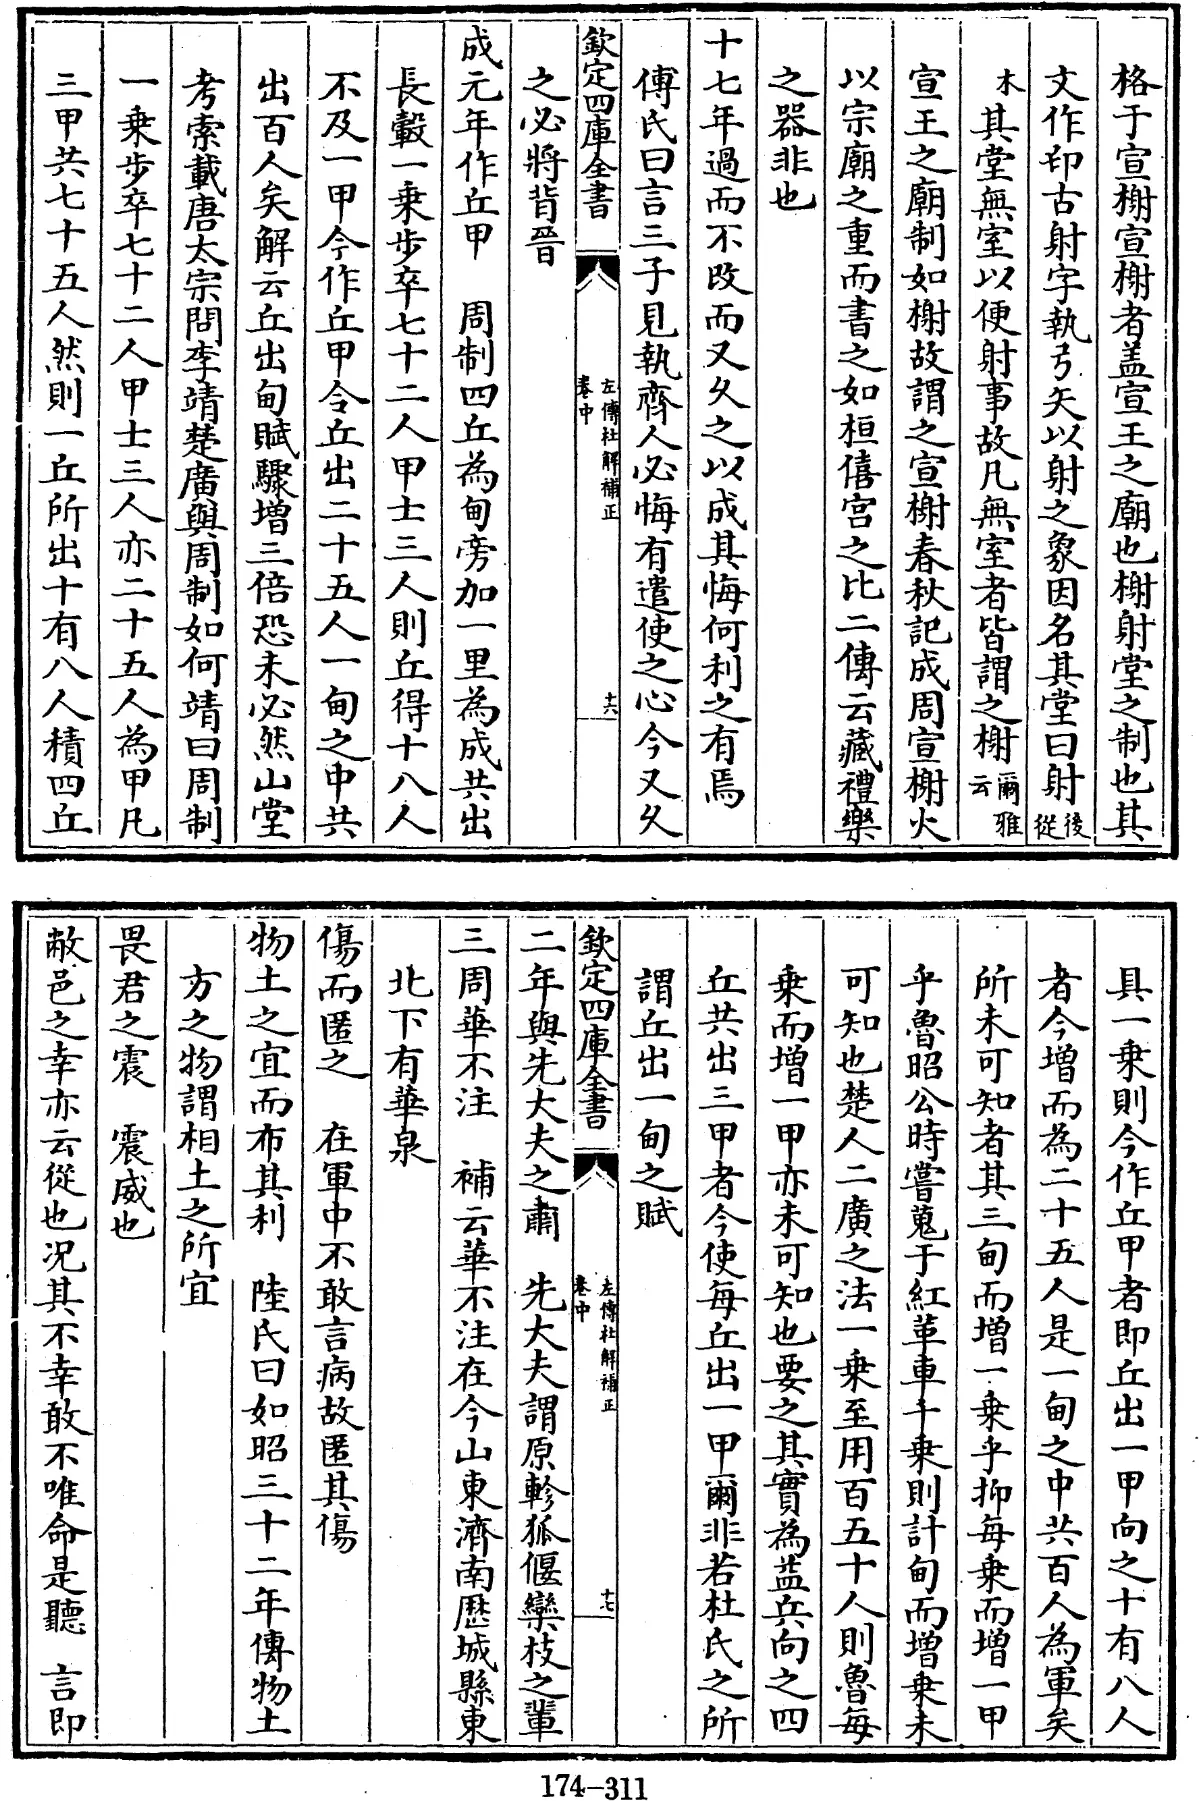 格于宣榭宣榭者盖宣王之廟也榭射堂之制也其
文作㓝古射字執弓矢以射之象因名其堂曰射後從
木其堂無室以便射事故凡無室者皆謂之榭爾雅云
宣王之廟制如榭故謂之宣榭春秋記成周宣榭火
以宗廟之重而書之如桓僖宮之比二傳云藏禮樂
之器非也
十七年過而不改而又久之以成其悔何利之有焉
傅氏曰言三子見執齊人必悔有遣使之心今又久
欽定四庫全書
左傳杜解補正
卷中
十六
之必將背晉
成元年作丘甲　周制四丘為甸旁加一里為成共出
長轂一乗步卒七十二人甲士三人則丘得十八人
不及一甲今作丘甲令丘出二十五人一甸之中共
出百人矣解云丘出甸賦驟增三倍恐未必然山堂
考索載唐太宗問李靖楚廣與周制如何靖曰周制
一乗步卒七十二人甲士三人亦二十五人為甲凡
三甲共七十五人然則一丘所出十有八人積四丘
具一乗則今作丘甲者即丘出一甲向之十有八人
者今增而為二十五人是一甸之中共百人為軍矣
所未可知者其三甸而增一乗乎抑每乗而增一甲
乎魯昭公時嘗蒐于紅革車千乗則計甸而增乗未
可知也楚人二廣之法一乗至用百五十人則魯每
乗而增一甲亦未可知也要之其實為益兵向之四
丘共出三甲者今使每丘出一甲爾非若杜氏之所
謂丘出一甸之賦
欽定四庫全書
左傳杜解補正
卷中
十七
二年與先大夫之肅　先大夫謂原軫狐偃欒枝之輩
三周華不注　補云華不注在今山東濟南歴城縣東
北下有華泉
傷而匿之　在軍中不敢言病故匿其傷
物土之宜而布其利　陸氏曰如昭三十二年傳物土
方之物謂相土之所宜
畏君之震　震威也
敝邑之幸亦云從也况其不幸敢不唯命是聽　言即
174-311